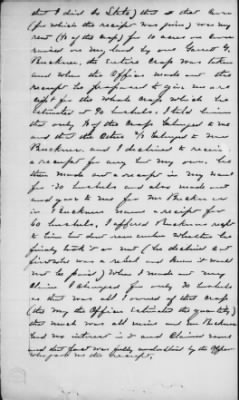 that I did so State) that that corn
(for which the receipt was given) was my
rent (1/3 of the crop) for 10 acres on corn
raised on my land by one Garrett G.
Buckner, the Entire Crop was taken
and when the Officer made out the
receipt he proposed to give me a re-
ceipt for the Whole Crop which he
Estimated at 90 bushels. I told him
that only 1/3 of the Crop belonged to me
and that the other 2/3 belonged to Mr
Buckner. and I declined to receive
a receipt for any but my own. he
then made out a receipt in my name
for 30 bushels and also made out
and gave to me for Mr Buckner
in Buckners name a receipt for
60 bushels, I offered Buckners receipt
to him but dont remember whether he
finally took it or not (he declined at
first who was a rebel and knew it would
not be paid) When I made out my
Claim I charged for only 30 bushels
as that was all I owned of the Crop
(the way the Officer estimated the quantity)
that much was all mine and Mr Buckner
had no interest in it and Claimed none
and that fact was fully understood by the Officer
who gave me the Receipt.